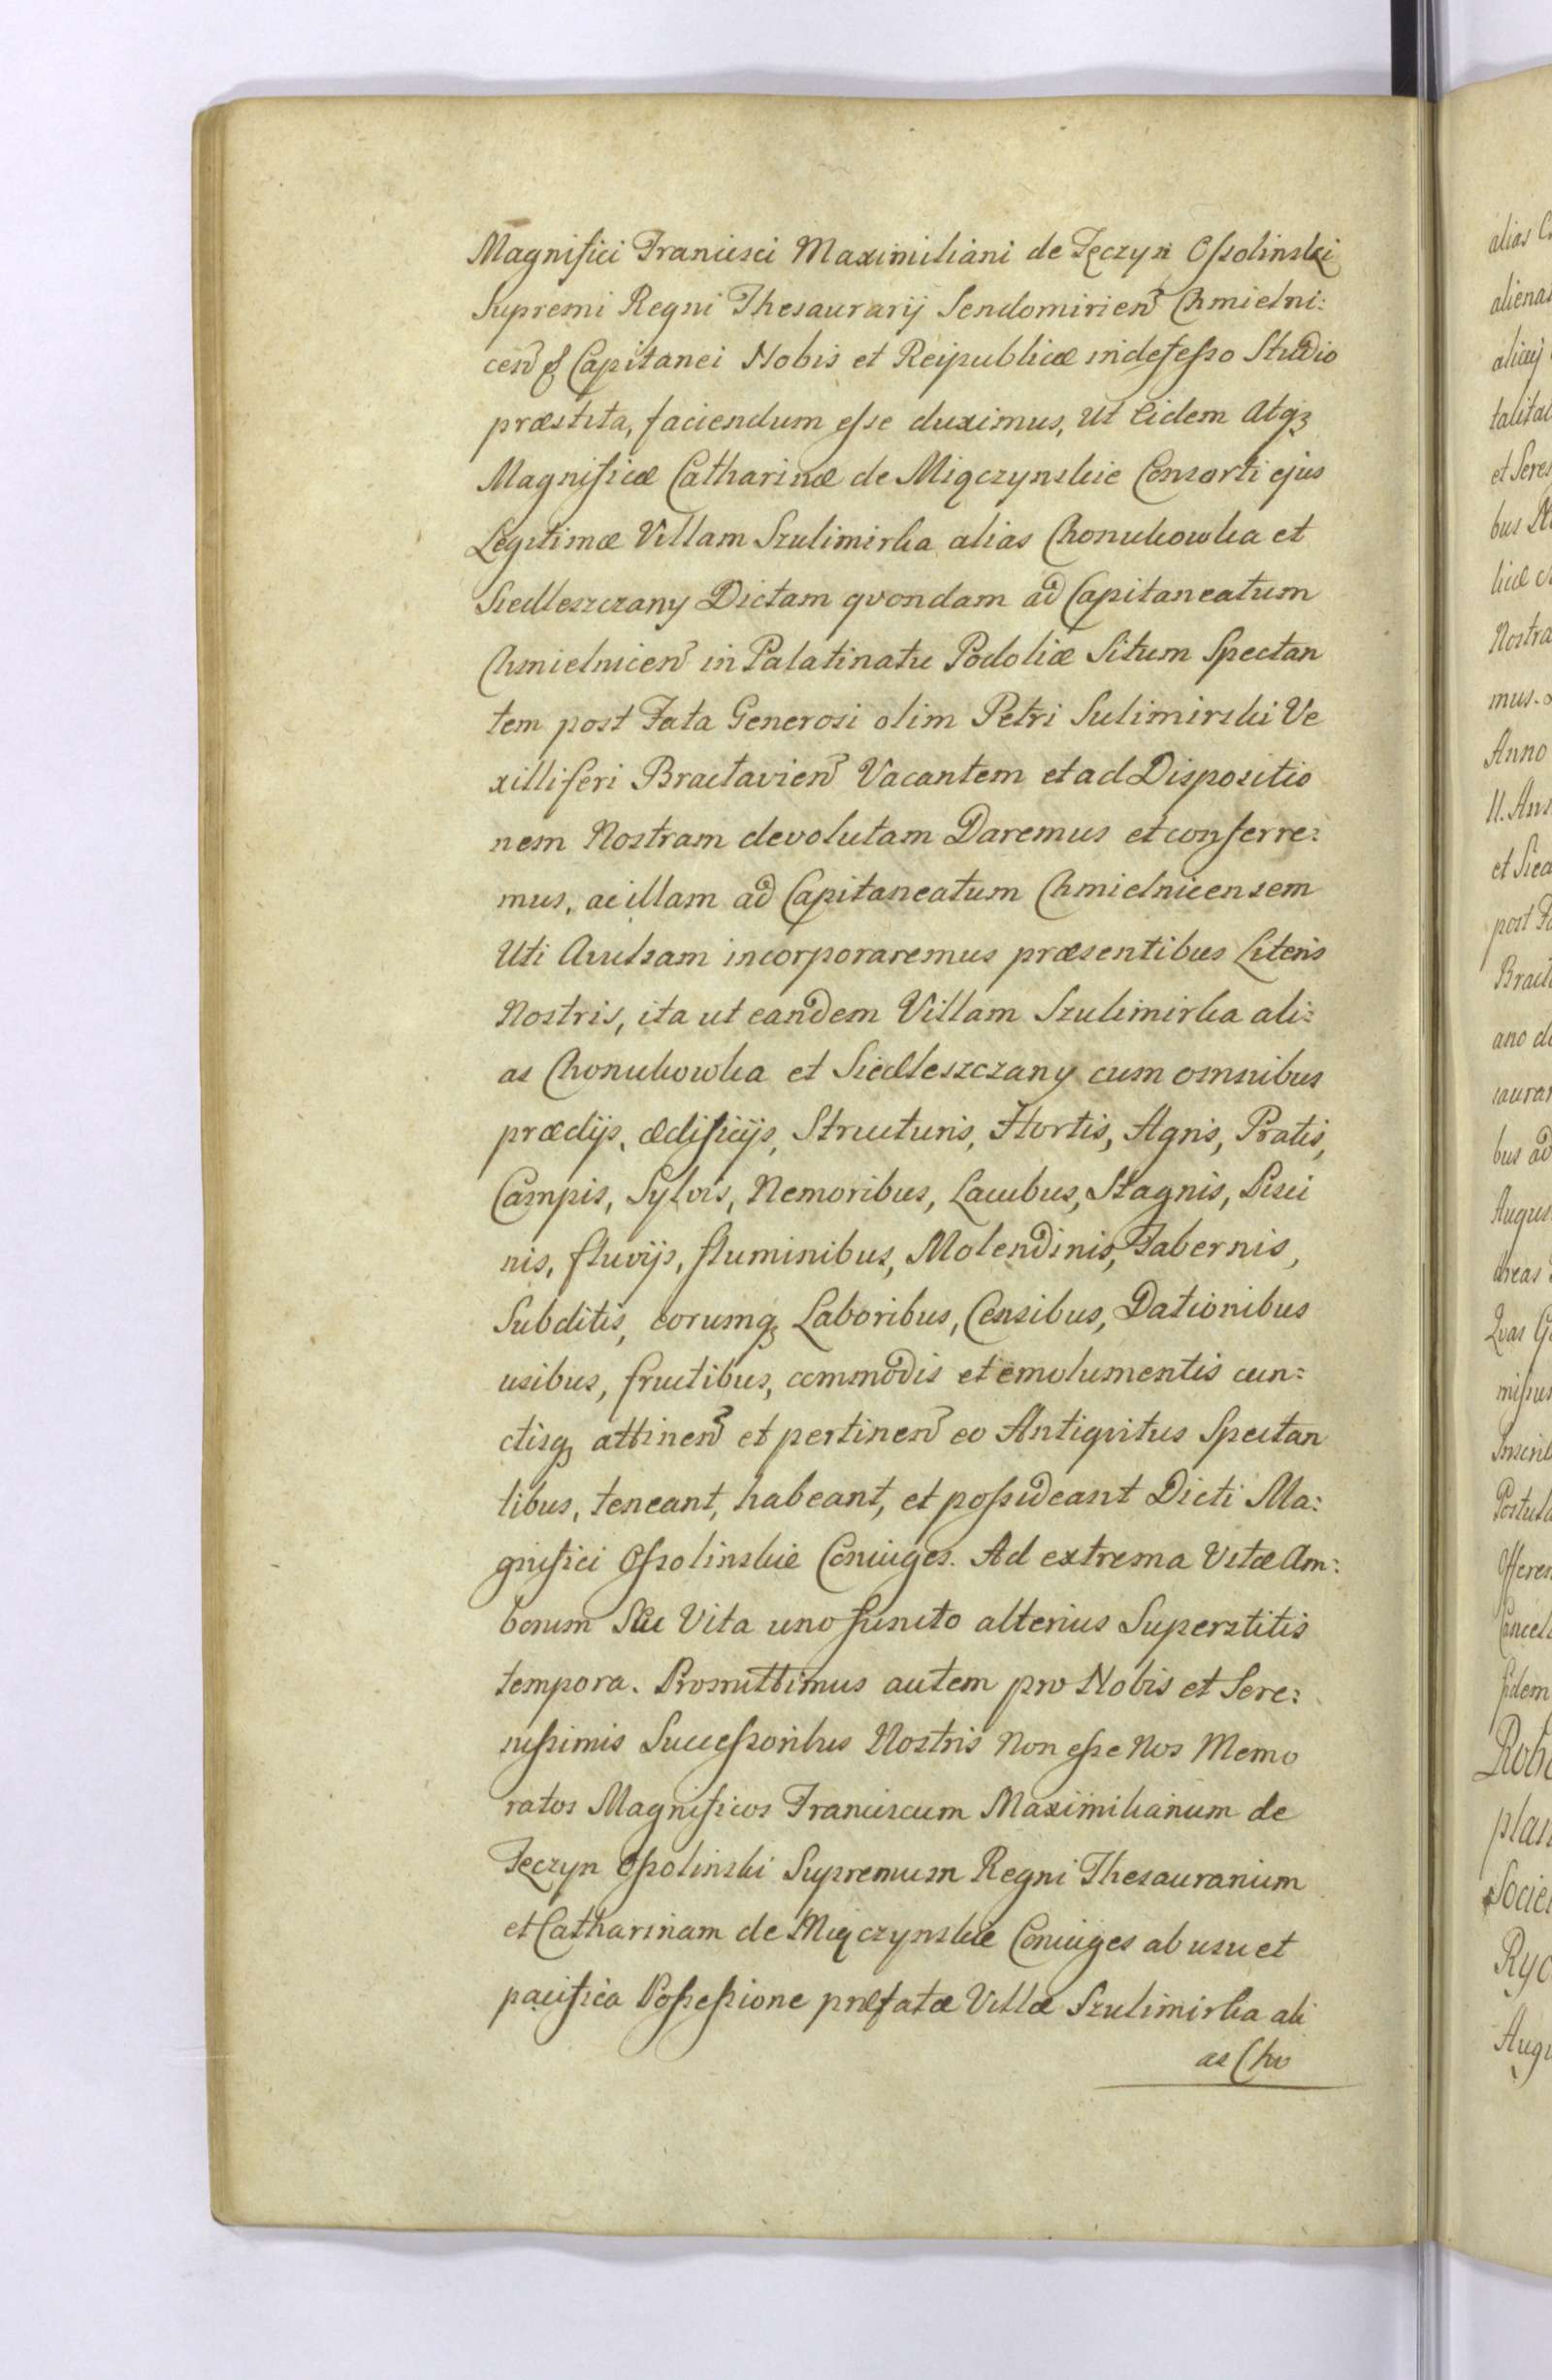 Magnifici Francisci Maximiliani de Tęczyn Ossolinski
Supremi Regni Thesaurarij Sendomirien Chmielni:
cen & Capitanei Nobis et Reipublicæ indefesso Studio
præstita, faciendum esse duximus, Ut Eidem Atqз
Magnificæ Catharinæ de Miączynskie Consorti ejus
Legitimæ Villam Szulimirka alias Chonukowka et
Siedleszczany Dictam qvondam ad Capitaneatum
Chmielnicen in Palatinatu Podoliæ Situm Spectan
tem post Fata Generosi olim Petri Sulimirski Ve
xilliferi Bractavien Vacantem et ad Dispositio
nem Nostram devolutam Daremus et conferre:
mus, ac illam ad Capitaneatum Chmielnicensem
Uti Avulsam incorporaremus præsentibus Literis
Nostris, ita ut eandem Villam Szulimirka ali:
as Chonukowka et Siedleszczany cum omnibus
prædijs, ædificijs, Structuris, Hortis, Agris, Pratis,
Campis, Sylvis, Nemoribus, Lacubus, Stagnis, Pisci
nis, fluvijs, fluminibus, Molendinis, Tabernis,
Subditis, eorumq Laboribus, Censibus, Dationibus
usibus, fructibus, commodis et emolumentis cun:
ctisq attinen et pertinen eo Antiqvitus Spectan
tibus, teneant, habeant, et possideant Dicti Ma:
gnifici Ossolinskie Coniuges. Ad extrema Vitæ Am:
borum Seu Vita uno functo alterius Superstitis
tempora. Promittimus autem pro Nobis et Sere:
nissimis Successoribus Nostris Non esse Nos Memo
ratos Magnificos Franciscum Maximilianum de
Tęczyn Ossolinski Supremum Regni Thesaurarium
et Catharinam de Miączynskie Coniuges ab usu et
pacifica Possessione præfatæ Villæ Szulimirka ali
as Cho